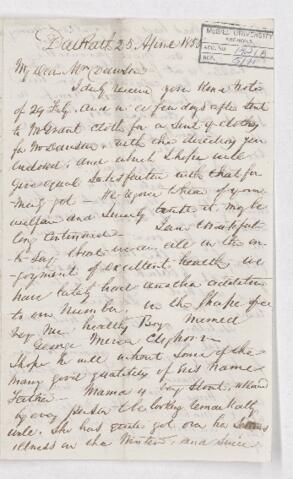 McGILL UNIVERSITY
ARCHIVES
ACC. NO.
REF.
25 April 185
My dear Mrs Dawson
I duly received your kind note
of 24 Feby. and in a few days after sent
to Mr Grant cloth for a suit of clothes
for Mr Dawson with the direction you
enclosed, and which I hope will
give equal satisfaction with that for-
merly got - We rejoice to hear of your
welfare and sincerely trust it may be
long continued - I am
to say that we are all in the en-
joyment of excellent health, we
have lately had another addition
to our number, in the shape of a
healthy Boy named
George Mercer
I hope he will inherit some of the
many good qualities of his name
Father - Mama is very stout, allowed
by every person to be looking remarkably
well. She has quite got over her serious
illness in the Winter, and since